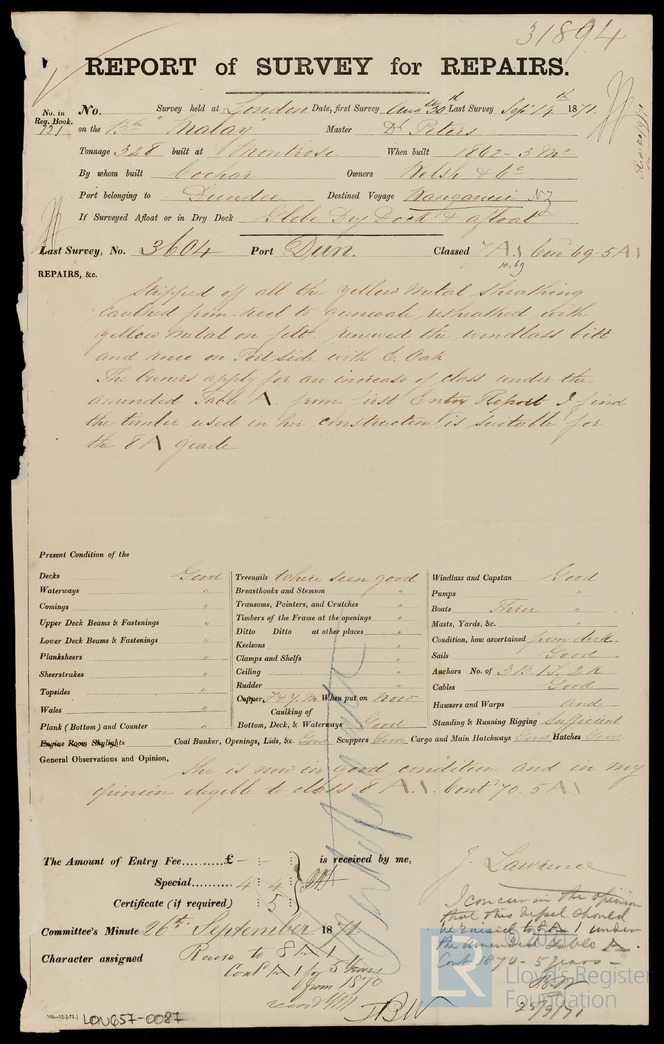 31894
REPORT of SURVEY for REPAIRS.
No. in Reg. Book. 721 No. Survey held at London Date, first Survey Augt 30th Last Survey Sept 14th 1871.
on the Bk "Malay" Master D. Peters
Tonnage 328 built at Montrose When built 1862 - 3 Mo
By whom built Owners Welsh & Co
Port belonging to Dundee Destined Voyage Wanganui NZ
If Surveyed Afloat or in Dry Dock Globe Dry Dock & afloat
Last Survey, No. 3604 Port Dun. Classed 7 A 1 Cont 69 - 5 A 1
10,69
REPAIRS, &c.
Stripped off all the yellow metal sheathing
caulked from keel to gunwale, resheathed with
yellow metal on felt. renewed the windlass bitt
and knee on Port side with E. Oak
The Owners apply for an increase of class under the
amended Table A. from first Entry Report I find
the timber used in her construction is suitable for
the 8 A grade
Present Condition of the
Decks Good
Waterways "
Comings "
Upper Deck Beams & Fastenings "
Lower Deck Beams & Fastenings "
Planksheers "
Sheerstrakes "
Topsides "
Wales "
Plank (Bottom) and Counter "
Treenails Where seen good
Breasthooks and Stemson "
Transoms, Pointers, and Crutches "
Timbers of the Frame at the openings "
Ditto Ditto at other places "
Keelsons "
Clamps and Shelfs "
Ceiling "
Rudder "
Copper F & Y.M When put on Now
Caulking of
Bottom, Deck, & Waterways Good
Windlass and Capstan Good
Pumps "
Boats Three "
Masts, Yards, &c. "
Condition, how ascertained from deck
Sails Good
Anchors No. of 3B. 1S. 2K
Cables Good
Hawsers and Warps and
Standing & Running Rigging Sufficient
Engine Room Skylights Coal Bunker, Openings, Lids, &c. Good Scuppers Good Cargo and Main Hatchways Good Hatches Good
General Observations and Opinion,
She is now in good condition and in my
opinion eligible to class 8 A 1. Cont 70. 5 A 1
The Amount of Entry Fee.........£ - : - : is received by me,
Special......... 4 : 4 :
Certificate (if required) : 5 :
J. Lawrence
Committee's Minute 26th September 1871
Character assigned Raise to 8 A 1
Contd A 1 for 5 Years
from 1870
JBW
I concur in the opinion
that this vessel should
be raised to 8 A 1 under
the amended Table A.
Cont 1870 - 5 years -
25/9/71
LON657-0087
LR
Lloyd's Register
Foundation